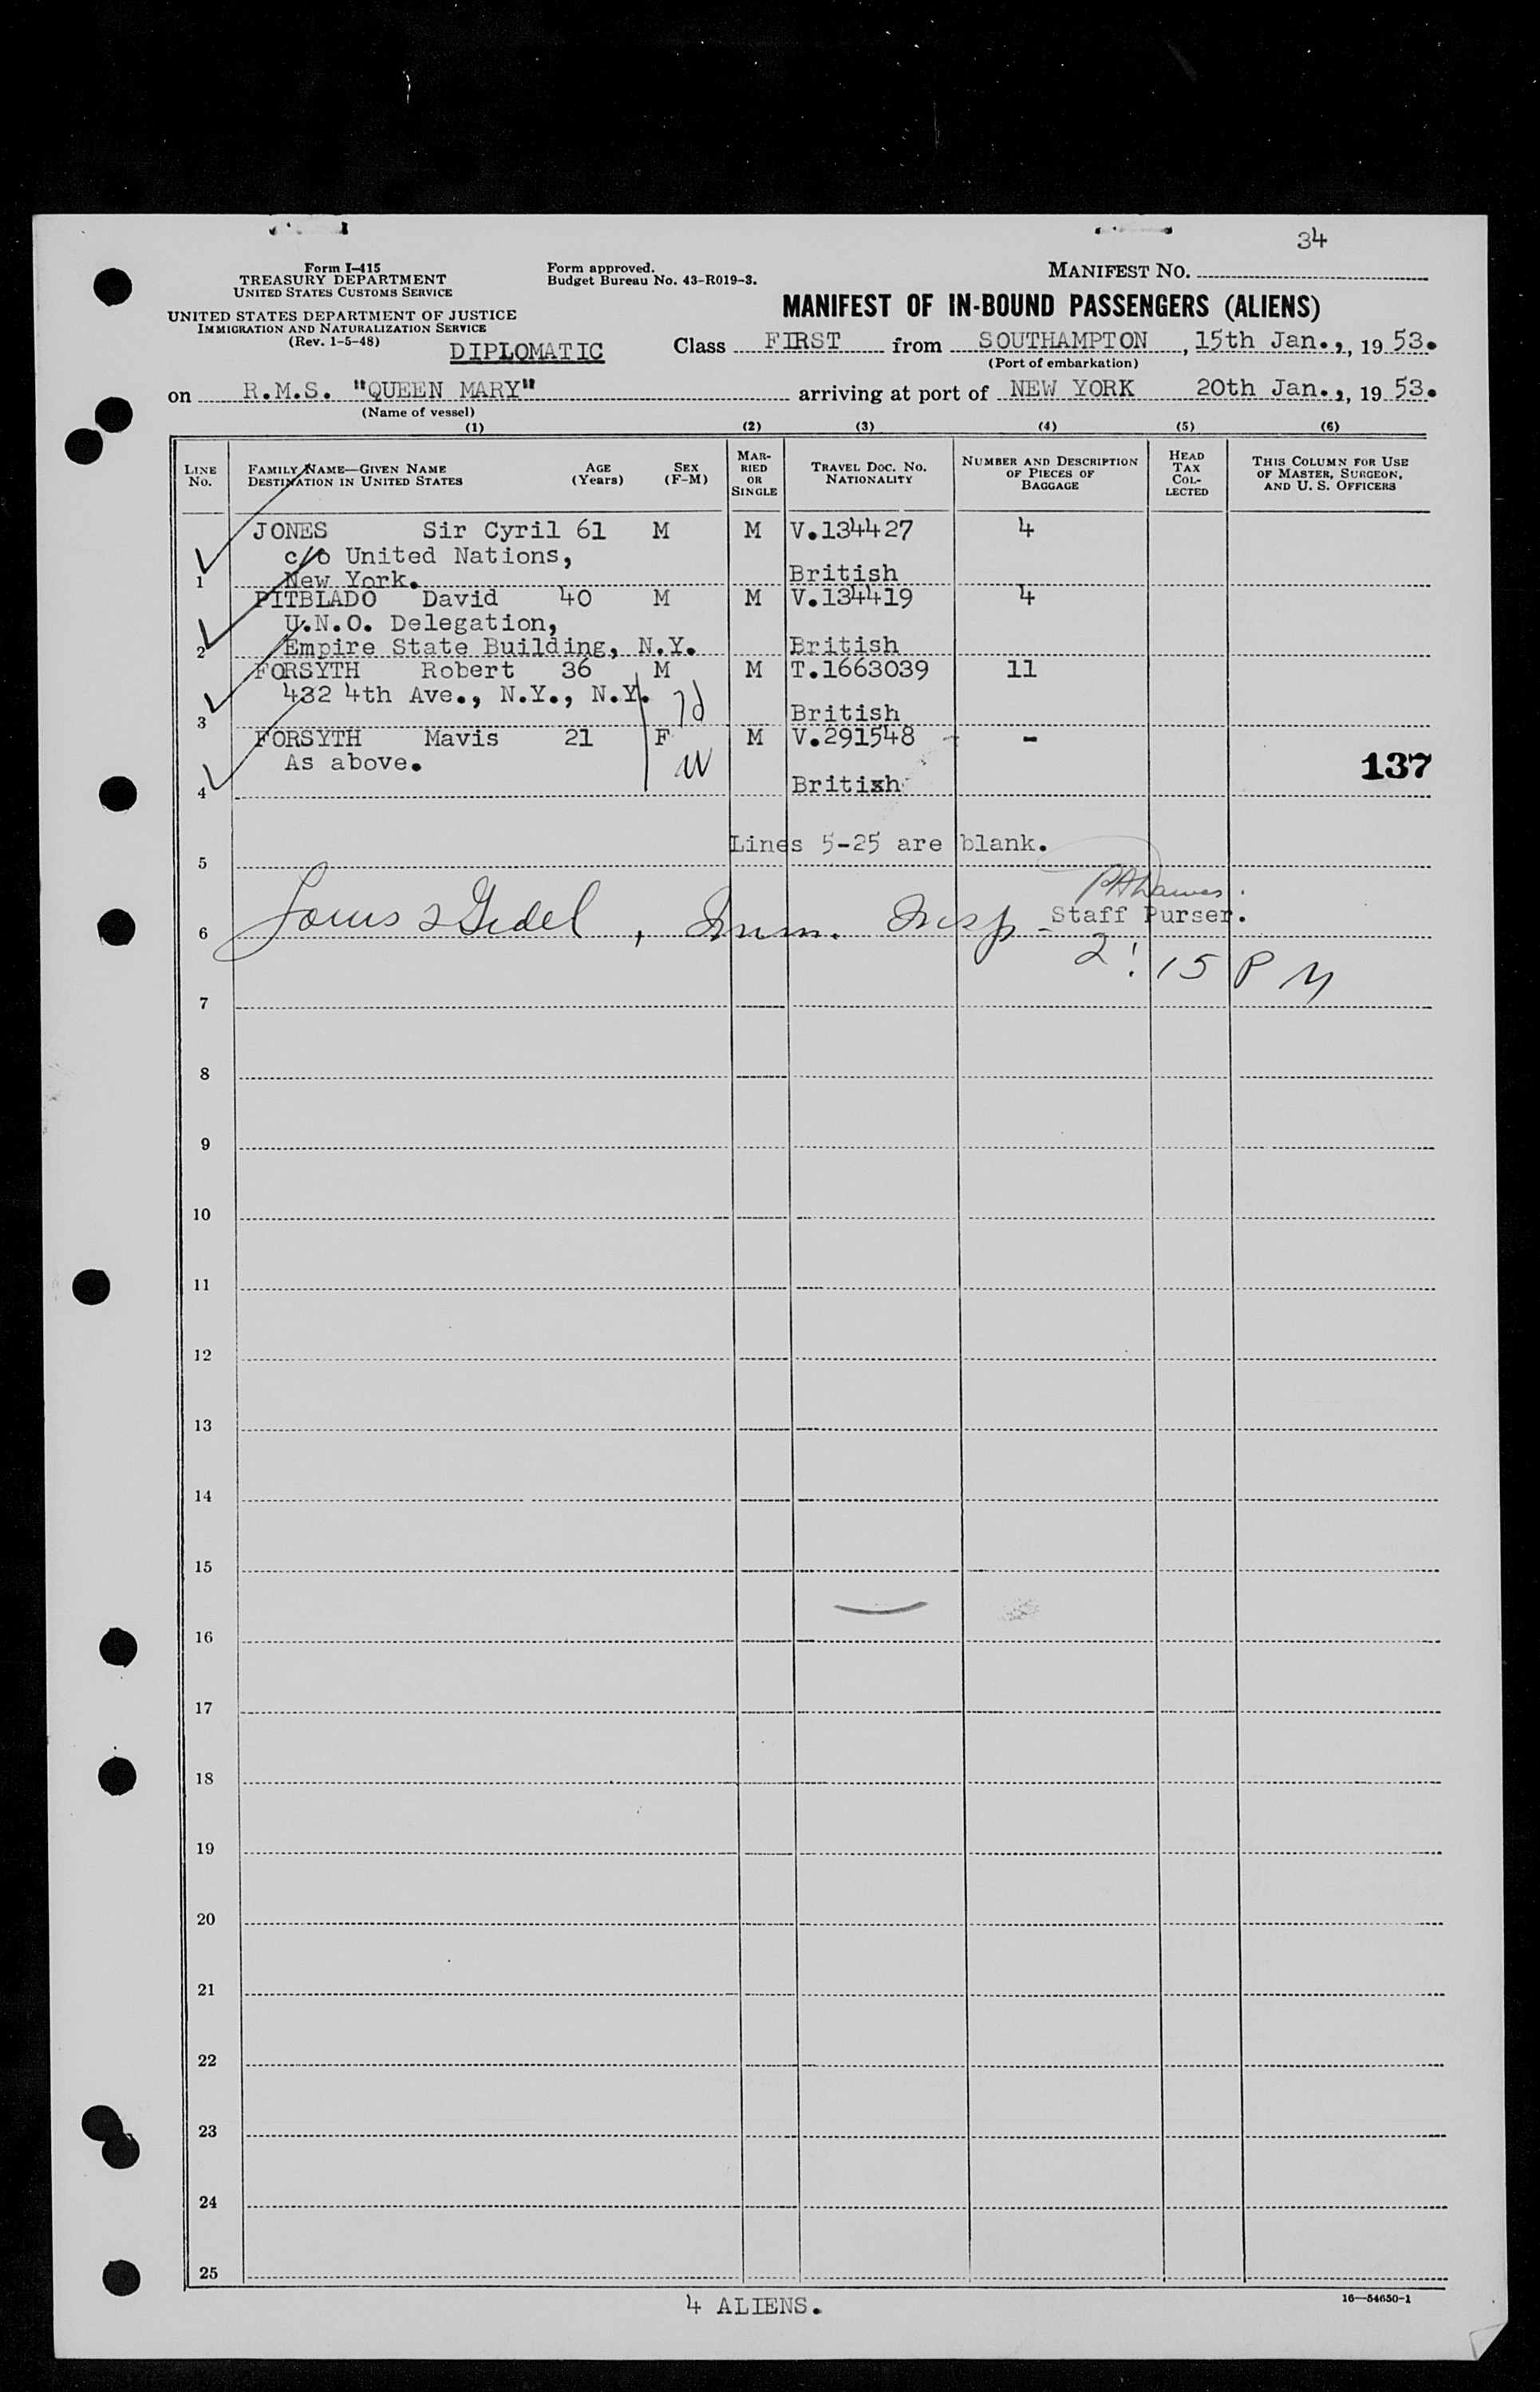 34
Form I-415
TREASURY DEPARTMENT
UNITED STATES CUSTOMS SERVICE
UNITED STATES DEPARTMENT OF JUSTICE
IMMIGRATION AND NATURALIZATION SERVICE
(Rev. 1-5-48)
DIPLOMATIC
Form approved.
Budget Bureau No. 43-R019-3.
MANIFEST NO.
MANIFEST OF IN-BOUND PASSENGERS (ALIENS)
Class FIRST from SOUTHAMPTON, 15th Jan.,, 19 53.
(Port of embarkation)
on R.M.S. "QUEEN MARY" arriving at port of NEW YORK 20th Jan.,, 19 53.
(Name of vessel)
(1) (2) (3) (4) (5) (6)
LINE No. FAMILY NAME—GIVEN NAME DESTINATION IN UNITED STATES AGE (Years) SEX (F-M) MARRIED OR SINGLE TRAVEL DOC. NO. NATIONALITY NUMBER AND DESCRIPTION OF PIECES OF BAGGAGE HEAD TAX COLLECTED THIS COLUMN FOR USE OF MASTER, SURGEON, AND U. S. OFFICERS
JONES Sir Cyril 61 M M V.134427 4
c/o United Nations,
1 New York. British
PITBLADO David 40 M M V.134419 4
U.N.O. Delegation,
2 Empire State Building, N.Y. British
FORSYTH Robert 36 M M T.1663039 11
432 4th Ave., N.Y., N.Y.
3 British
FORSYTH Mavis 21 F M V.291548 -
As above. 137
4 British
Lines 5-25 are blank.
5
Staff Purser.
6 Imm. Insp-
2:15 PM
7
8
9
10
11
12
13
14
15
16
17
18
19
20
21
22
23
24
25
4 ALIENS.
16—54650-1